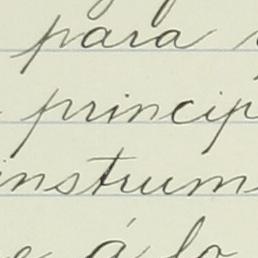 para
princip
instrum
á lo